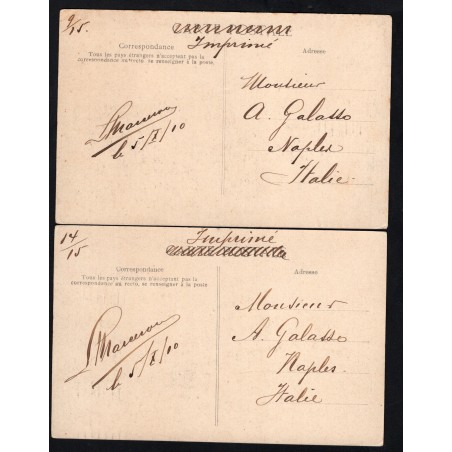 9/15.
Imprimé
Correspondance
Tous les pays étrangers n'acceptent pas la
correspondance au recto, se renseigner à la poste
Adresse
Monsieur
A. Galasso
Naples
Italie
le 5/X/10
14/15
Imprimé
Correspondance
Tous les pays étrangers n'acceptent pas la
correspondance au recto, se renseigner à la poste
Adresse
Monsieur
A. Galasso
Naples
Italie
le 5/X/10